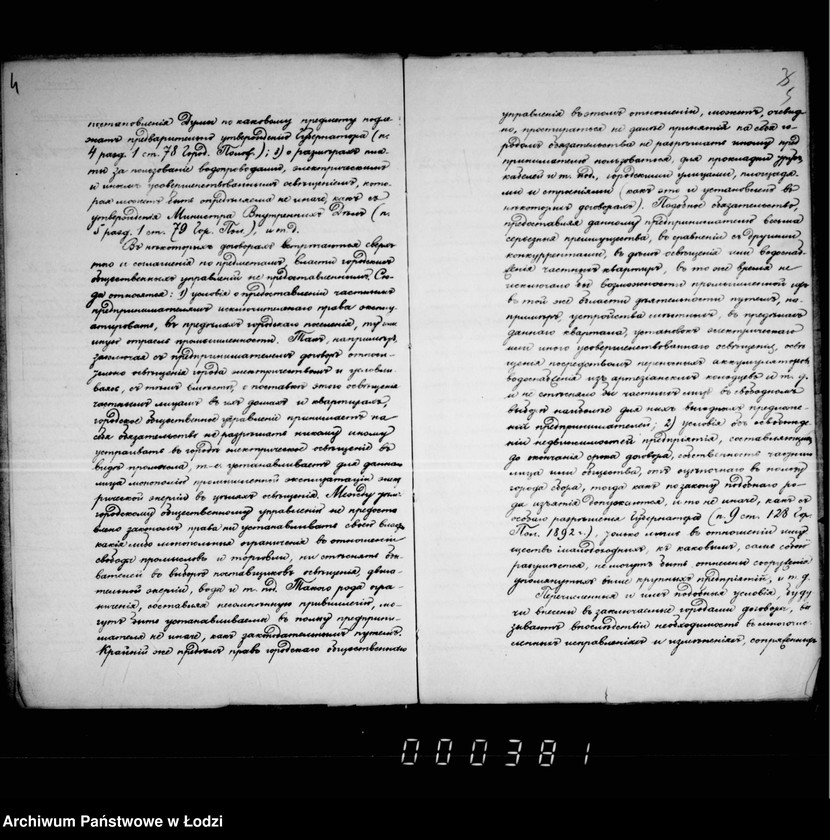 4
постановленія Думы по каковому предмету подле-
жатъ предварительно утвержденію Губернатора (п.
4 разд. 1 ст. 78 Город. Полож.); 3) о размѣрахъ пла-
ты за пользованіе водопроводами, электрическимъ
и инымъ усовершенствованнымъ освѣщеніемъ, кото-
рая можетъ быть опредѣляема не иначе, какъ съ
утвержденія Министра Внутреннихъ Дѣлъ (п.
5 разд. 1 ст. 79 Гор. Пол.), и т.д.
Въ нѣкоторыхъ договорахъ встрѣчаются сверхъ
того и соглашенія по предметамъ, власти городскихъ
общественныхъ управленій не предоставленнымъ. Сю-
да относятся: 1) условія о предоставленіи частнымъ
предпринимателямъ исключительнаго права эксплу-
атировать, въ предѣлахъ городскаго поселенія, ту или
иную отрасль промышленности. Такъ, напримѣръ,
заключая съ предпринимателемъ договоръ относи-
тельно освѣщенія города электричествомъ и условли-
ваясь, съ тѣмъ вмѣстѣ, о поставкѣ этого освѣщенія
частнымъ лицамъ въ ихъ домахъ и квартирахъ,
городское общественное управленіе принимаетъ на
себя обязательство не разрѣшать никому иному
устраивать въ городѣ электрическое освѣщеніе въ
видѣ промысла, т.е. устанавливаетъ для даннаго
лица монополію промышленной эксплуатаціи элек-
трической энергіи въ цѣляхъ освѣщенія. Между тѣмъ
городскому общественному управленію не предостав-
лено закономъ права ни устанавливать своею властью
какія либо монопольныя ограниченія въ отношеніи
свободы промысловъ и торговли, ни стѣснять обы-
вателей въ выборѣ поставщиковъ освѣщенія, двига-
тельной энергіи, воды и т. под. Такого рода огра-
ниченія, составляя несомнѣнную привиллегію, мо-
гутъ быть устанавливаемы въ пользу предприни-
мателя не иначе, какъ законодательнымъ путемъ.
Крайній же предѣлъ правъ городскаго общественнаго
5
управленія въ этомъ отношеніи, можетъ, очевид-
но, простираться не далѣе принятія на себя го-
родомъ обязательства не разрѣшать иному пред-
принимателю пользоваться, для прокладки трубъ,
кабелей и т. под., городскими улицами, площадя-
ми и строеніями (какъ это и установлено въ
нѣкоторыхъ договорахъ). Подобное обязательство,
предоставляя данному предпринимателю весьма
серьезныя преимущества, въ сравненіи съ другими
конкуррентами, въ дѣлѣ освѣщенія или водоснаб-
женія частныхъ квартиръ, въ то же время не
исключало бы возможности промышленной
въ той же области дѣятельности путемъ, на-
примѣръ, устройства въ предѣлахъ
даннаго квартала, установокъ электрическаго
или иного усовершенствованнаго освѣщенія, освѣ-
щенія посредствомъ переносныхъ аккумуляторовъ,
водоснабженія изъ артезіанскихъ колодцевъ и т. д.
и не стѣсняло бы частныхъ лицъ въ свободномъ
выборѣ наиболѣе для нихъ выгодныхъ предложе-
ній предпринимателей; 2) условія объ освобожде-
ніи недвижимостей предпріятія, составляющихъ
до окончанія срока договора, собственность частнаго
лица или общества, отъ оцѣночнаго въ пользу
города сбора, тогда какъ по закону подобнаго ро-
да изъятія допускаются, и то не иначе, какъ съ
особаго разрѣшенія Губернатора (п. 9 ст. 128 Гор.
Пол. 1892 г.), только лишь въ отношеніи иму-
ществъ малодоходныхъ, къ каковымъ, само собой
разумѣется, не могутъ быть отнесены сооруженія
упомянутыхъ выше крупныхъ предпріятій, и т. д.
Перечисленныя и имъ подобныя условія, буду-
чи внесены въ заключаемые городами договоры, вы-
зываютъ впослѣдствіи необходимость въ многочис-
ленныхъ исправленіяхъ и измѣненіяхъ, сопряженныхъ
000381
Archiwum Państwowe w Łodzi